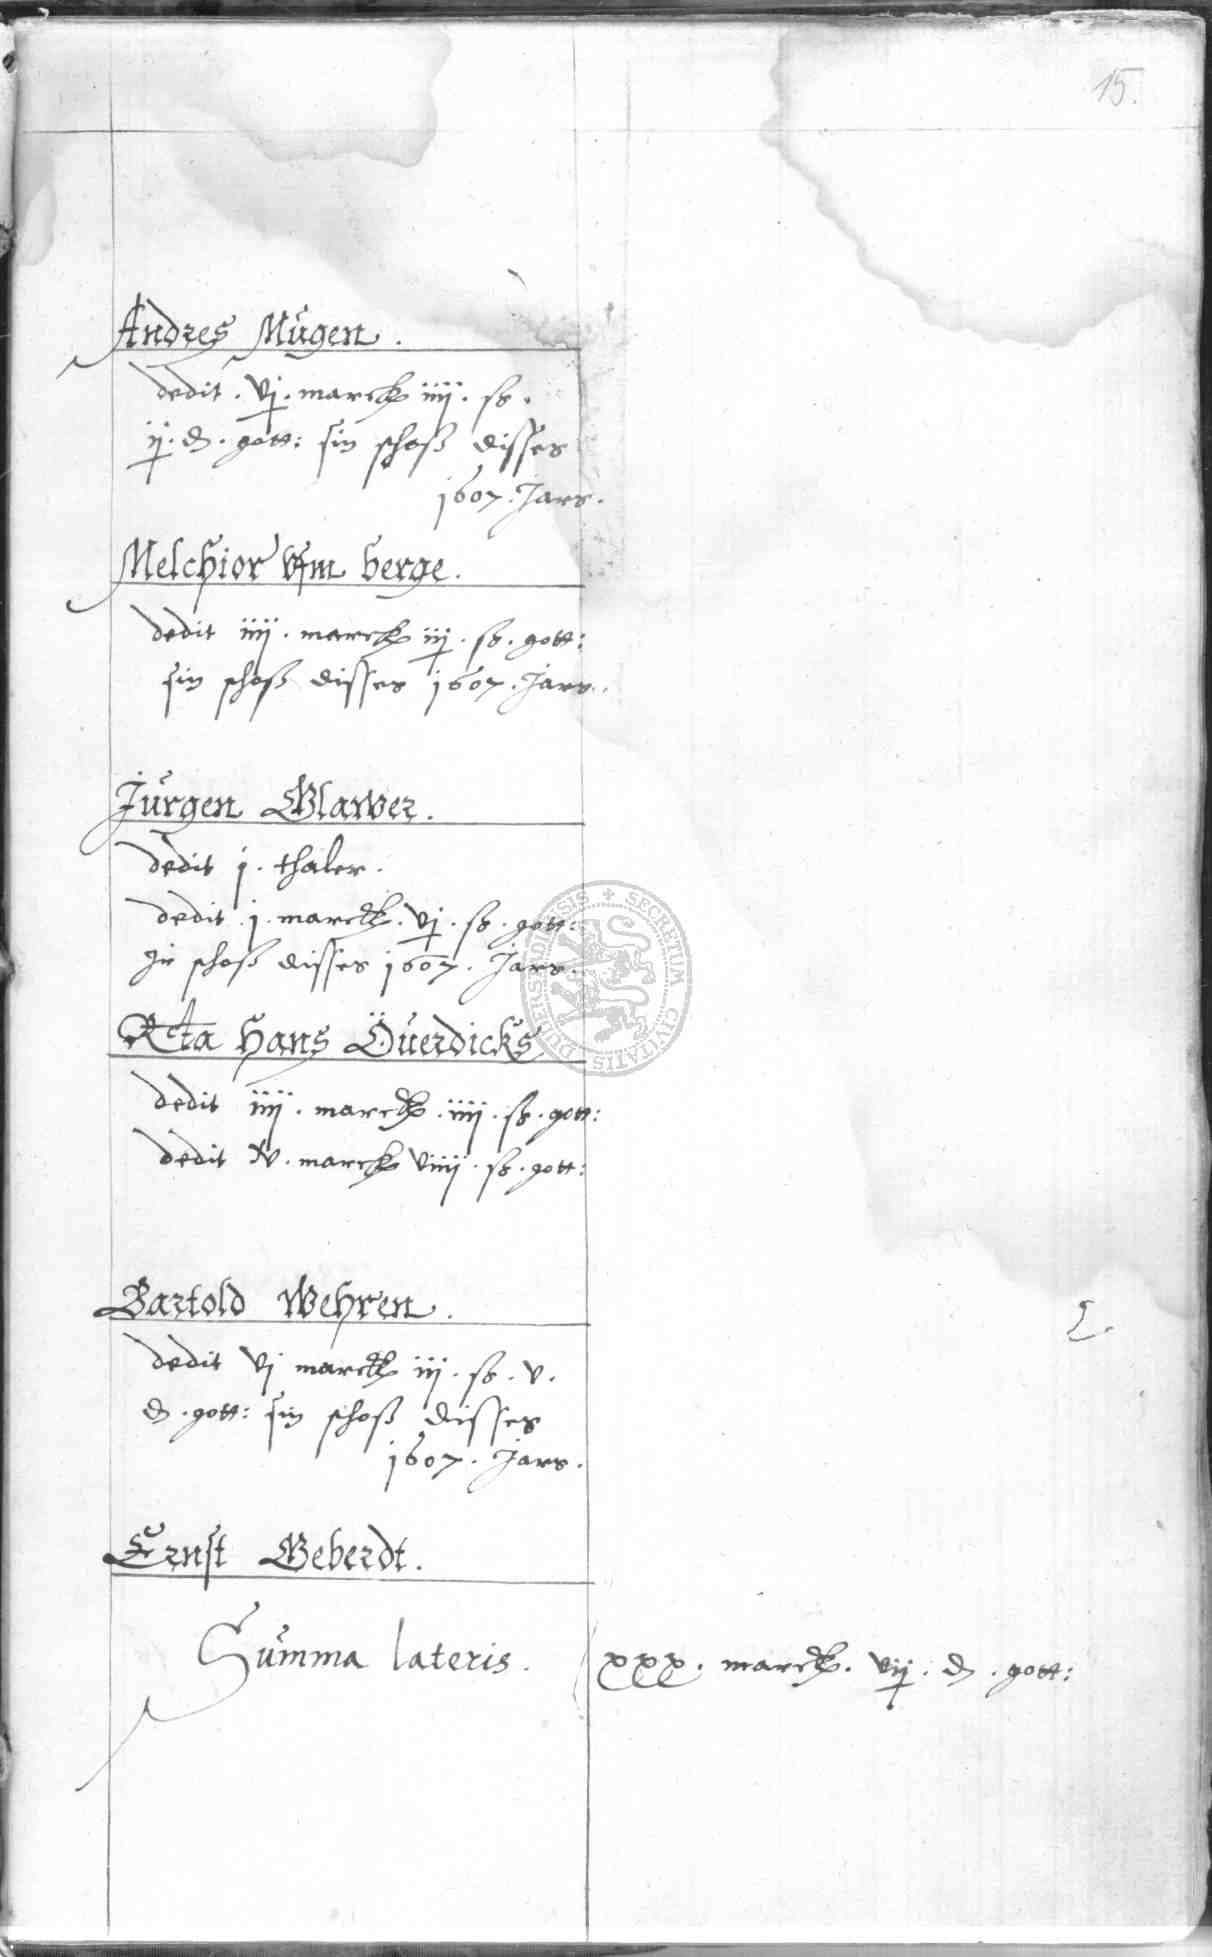 15.
Andres Mügen.
dedit. vj. marck iiij. ß.
ij. d. gott: sin schoß disses
1607. Jars.
Melchior vfm berge.
dedit iiij. marck iij. ß. gott:
sin schoß disses 1607. Jars.
Jürgen Glawer.
dedit j. thaler.
dedit. j. marck. vj. ß. gott:
schoß disses 1607. Jars.
Rcta Hans Öuerdicks
dedit iiij. marck. iiij. ß. gott:
dedit iv. marck viiij. ß. gott:
Bartold Wehren.
dedit vj marck iij. ß. v.
d. gott: sin schoß disses
1607. Jars.
Ernst Geberdt.
Summa lateris. xxx. marck. vij. d. gott:
SECRETUM CIVITATIS DUDERSTADENSIS